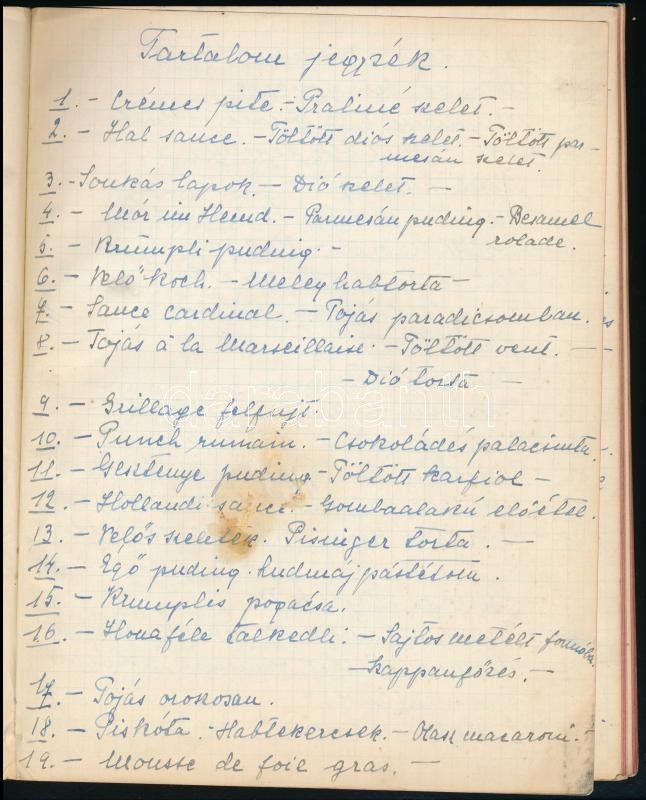 Tartalom jegyzék.
1. - Crémes pite. - Praliné szelet. -
2. - Hal sauce. - Töltött diós szelet. - Töltött par-
mesán szelet.
3. - Sonkás lapok. - Dió szelet. -
4. - Mór im Hemd. - Parmesán puding. - Besamel
rolade.
5. - Krumpli puding. -
6. - Velő koch. - Meleg habtorta -
7. - Sauce cardinal. - Tojás paradicsomban.
8. - Tojás à la Marseillaise. - Töltött vent. -
- Dió torta -
darabanth
9. - Grillage felfujt.
10. - Punch rumain. - Csokoládés palacsinta. -
11. - Gesztenye puding - Töltött karfiol -
12. - Hollandi sauce. - Gombaalakú előétel.
13. - Velős szeletek. Pisinger torta. -
14. - Égő puding. Ludmáj pástétom.
15. - Krumplis pogácsa.
16. - Ilonaféle talkedli. - Sajtos metélt formába.
- Szappanfőzés. -
17. - Tojás orokosan.
18. - Piskóta. - Habtekercsek. - Olasz macaroni. -
19. - Mousse de foie gras. -